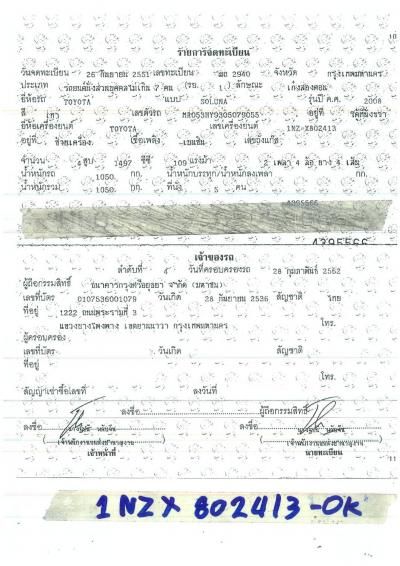 10
รายการจดทะเบียน
วันจดทะเบียน 26 กันยายน 2551 เลขทะเบียน 2940 จังหวัด กรุงเทพมหานคร
ประเภท รถยนต์นั่งส่วนบุคคลไม่เกิน 7 คน (รย. 1) ลักษณะ เก๋งสองตอน
ยี่ห้อรถ TOYOTA แบบ SOLUNA รุ่นปี ค.ศ. 2008
สี เทา เลขตัวรถ MR053HY9305079055 อยู่ที่
ยี่ห้อเครื่องยนต์ TOYOTA เลขเครื่องยนต์ 1NZ-X802413
อยู่ที่ ข้างเครื่อง เชื้อเพลิง เบนซิน เลขถังแก๊ส
จำนวน 4 สูบ 1497 ซีซี 109 แรงม้า 2 เพลา 4 ล้อ ยาง 4 เส้น
น้ำหนักรถ 1050 กก. น้ำหนักบรรทุก/น้ำหนักลงเพลา กก.
น้ำหนักรวม 1050 กก. ที่นั่ง 5 คน
4395566
เจ้าของรถ
ลำดับที่ 4 วันที่ครอบครองรถ 28 กุมภาพันธ์ 2562
ผู้ถือกรรมสิทธิ์ ธนาคารกรุงศรีอยุธยา จำกัด (มหาชน)
เลขที่บัตร 0107536001079 วันเกิด 28 กันยายน 2536 สัญชาติ ไทย
ที่อยู่ 1222 ถนนพระรามที่ 3
แขวงบางโพงพาง เขตยานนาวา กรุงเทพมหานคร โทร.
ผู้ครอบครอง
เลขที่บัตร วันเกิด สัญชาติ
ที่อยู่
โทร.
สัญญาเช่าซื้อเลขที่ ลงวันที่
ลงชื่อ ผู้ถือกรรมสิทธิ์
ลงชื่อ ลงชื่อ
(เจ้าพนักงานขนส่งชำนาญงาน) (เจ้าพนักงานขนส่งชำนาญงาน)
เจ้าหน้าที่ นายทะเบียน
11
1NZX 802413-OK